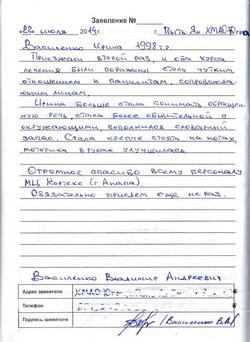 Заявление №
22 июля 2014г. г. Пыть Ях ХМАО-Югра
Василенко Ирина 1998 г.р.
Приезжали второй раз, и оба курса
лечения были поражены столь чутким
отношением к пациентам, сопровожа-
ющим лицам.
Ирина больше стала понимать обращен-
ную речь, стала более общительной с
окружающими, пополнился словарный
запас. Стала крепче стоять на ногах,
моторика в руках улучшилась.
Огромное спасибо всему персоналу
МЦ Кортекс (г. Анапа).
Обязательно приедем еще не раз.
Василенко Владимир Андреевич
Адрес заявителя ХМАО-Ю
Телефон
Подпись заявителя (Василенко В.А.)